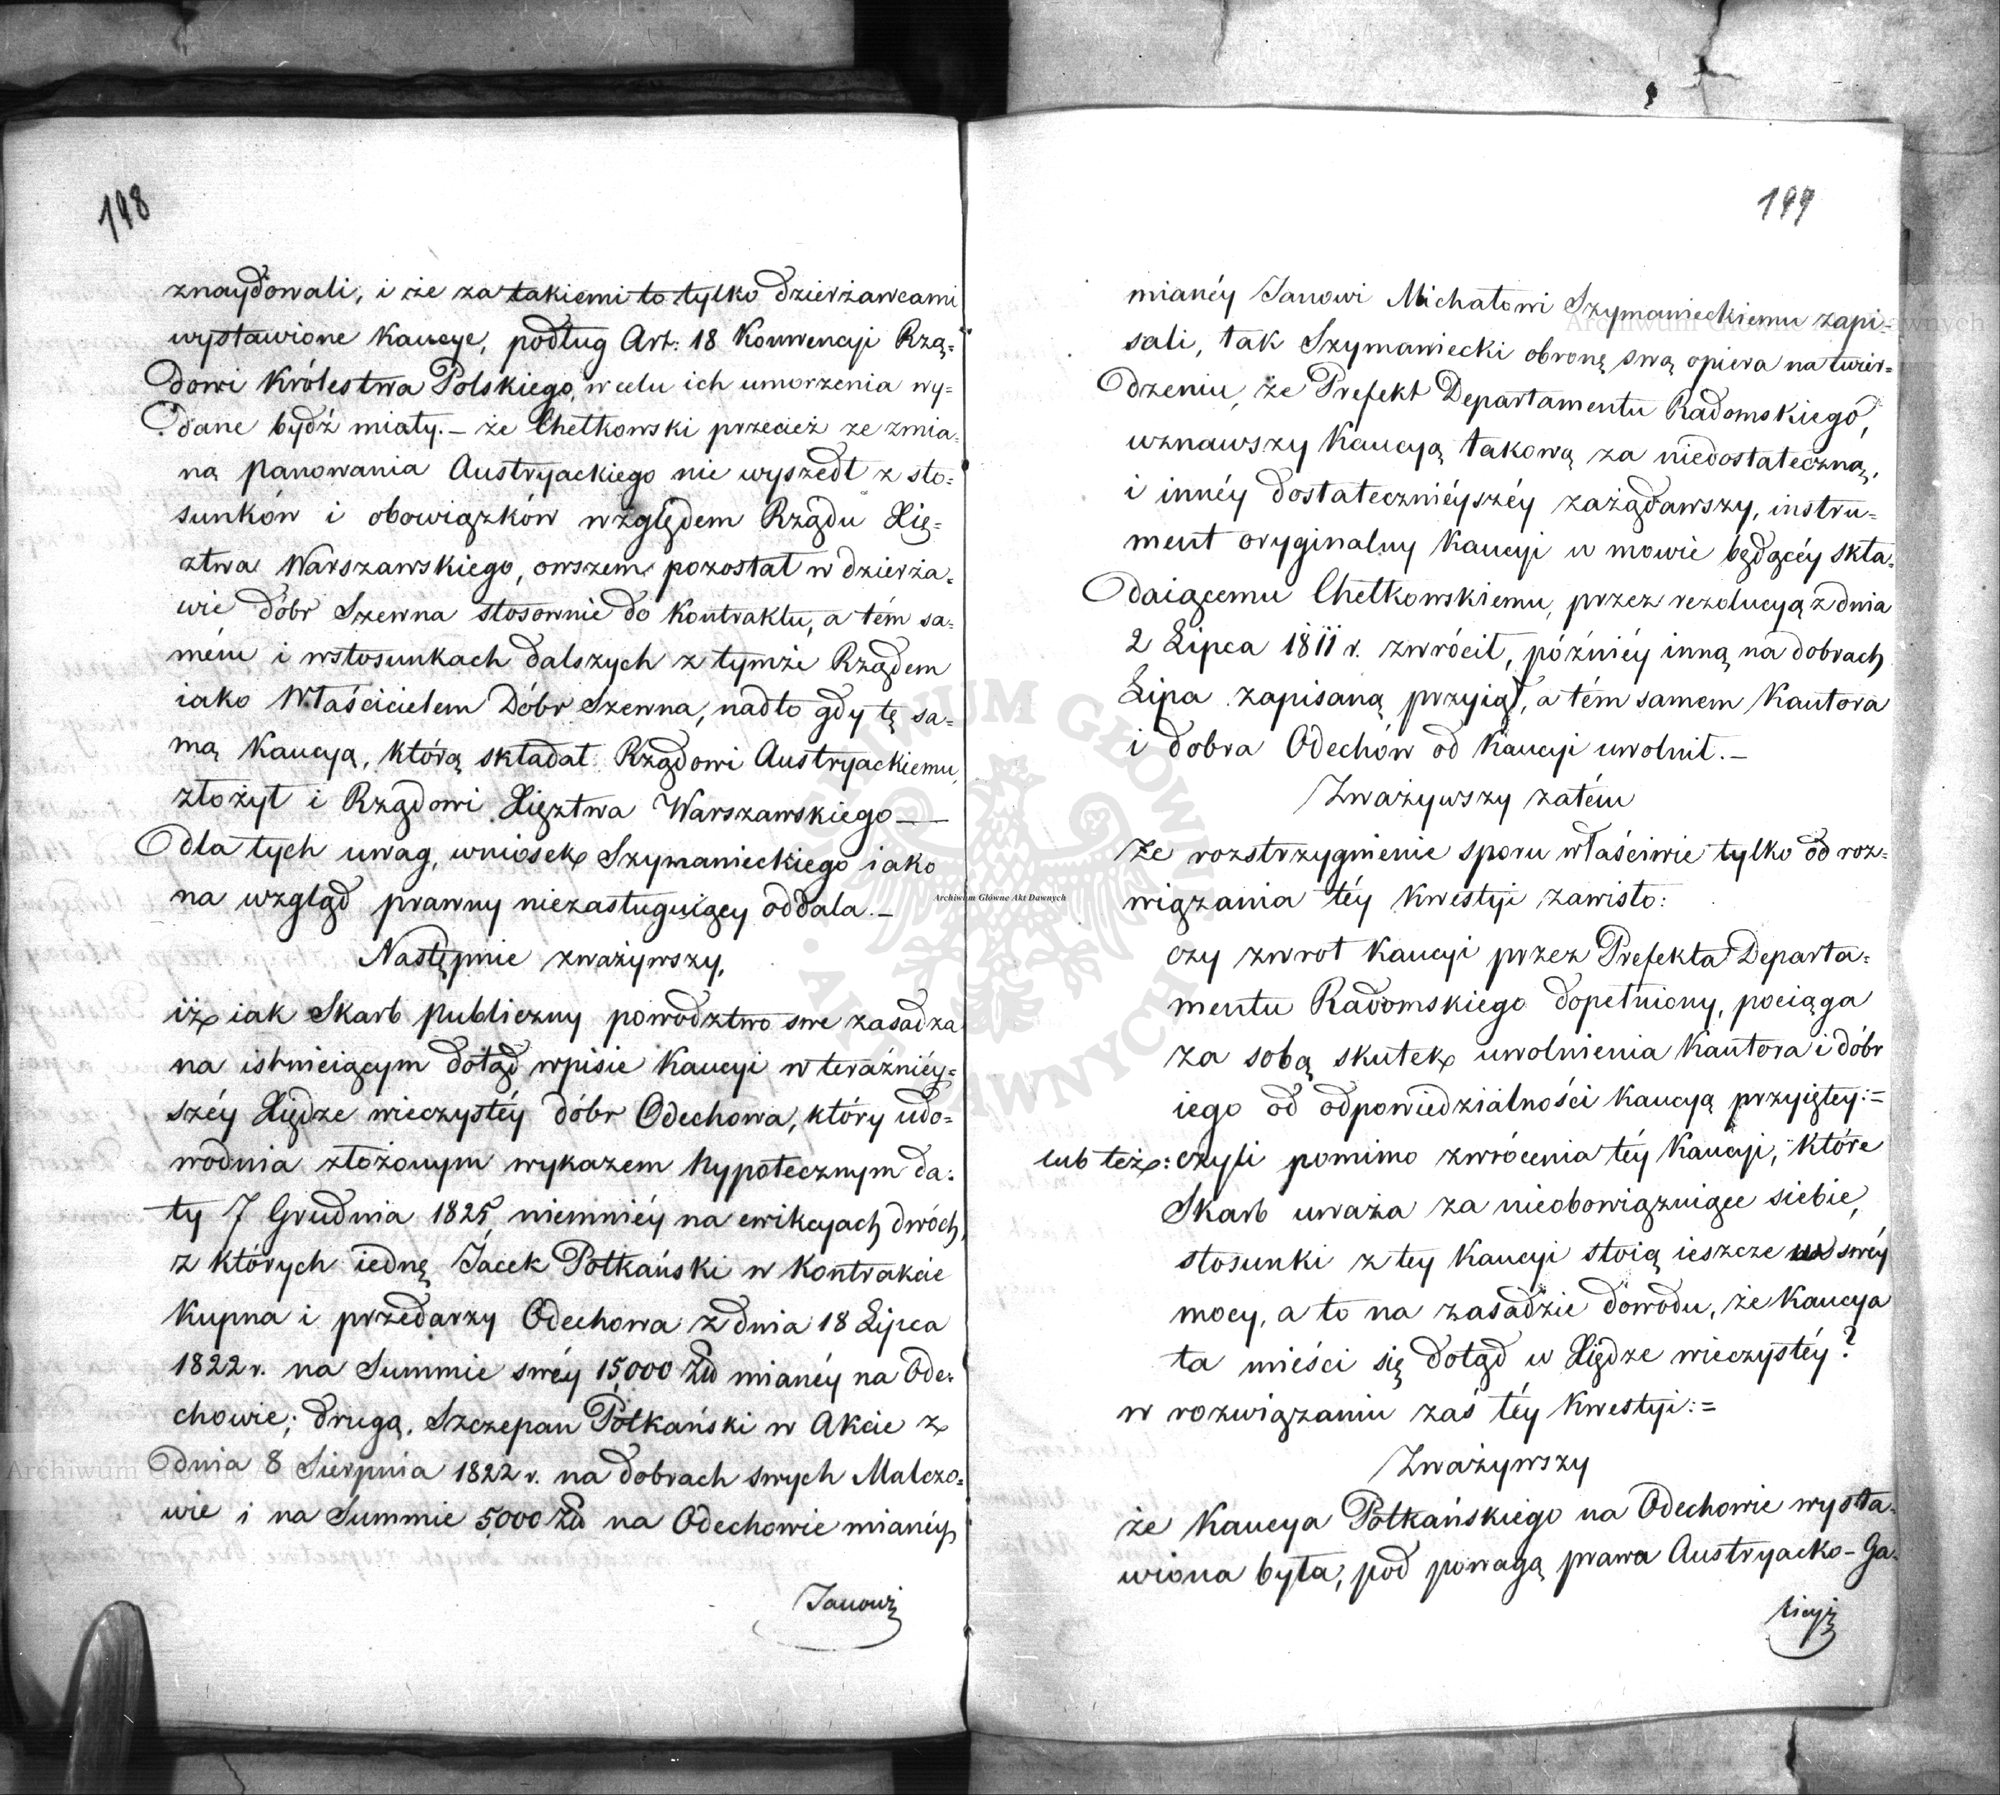 198
znaydowali, i że za takiemi to tylko dzierżawcami
wystawione Kaucye, podług Art: 18 Konwencyi Rzą-
dowi Królestwa Polskiego, w celu ich umorzenia wy-
dane bydź miały. – że Chełkowski przecież ze zmia-
ną panowania Austryackiego nie wyszedł z sto-
sunków i obowiązków względem Rządu Xię-
ztwa Warszawskiego, owszem pozostał w dzierża-
wie dóbr Szewna stosownie do Kontraktu, a tém sa-
mém i w stosunkach dalszych z tymże Rządem
iako Właścicielem Dóbr Szewna, nadto gdy tę sa-
mą Kaucyą, którą składał Rządowi Austryackiemu,
złożył i Rządowi Xięztwa Warszawskiego –
dla tych uwag, wniosek Szymanieckiego iako
na wzgląd prawny niezasługuiący oddala. –
Następnie zważywszy,
iż iak Skarb publiczny powództwo swe zasadza
na istnieiącym dotąd wpisie Kaucyi w teraźniéy-
széy Xiędze wieczystéy dóbr Odechowa, który udo-
wodnia złożonym wykazem hypotecznym da-
ty 7 Grudnia 1825, niemniéy na ewikcyach dwóch,
z których iednę Jacek Potkański w Kontrakcie
Kupna i przedarzy Odechowa z dnia 18 Lipca
1822 r. na Summie swéy 15,000 Złł mianéy na Ode-
chowie; drugą, Szczepan Potkański w Akcie z
dnia 8 Sierpnia 1822 r. na dobrach swych Malczo-
wie i na Summie 5,000 Złł na Odechowie mianéy
Janowi
199
mianéy Janowi Michałowi Szymanieckiemu zapi-
sali, tak Szymaniecki obronę swą opiera na twier-
dzeniu, że Prefekt Departamentu Radomskiego,
uznawszy Kaucyą takową za niedostateczną,
i innéy dostatecznieyszéy zażądawszy, instru-
ment oryginalny Kaucyi w mowie będącéy skła-
daiącemu Chełkowskiemu, przez rezolucyą z dnia
2 Lipca 1811 r. zwrócił, późniéy inną na dobrach
Lipa zapisaną przyiął, a tém samem Kautora
i dobra Odechów od Kaucyi uwolnił. –
Zważywszy zatém
że rozstrzygnienie sporu właściwie tylko od roz-
wiązania téy Kwestyi zawisło:
czy zwrot Kaucyi przez Prefekta Departa-
mentu Radomskiego dopełniony, pociąga
za sobą skutek uwolnienia Kautora i dóbr
iego od odpowiedzialności Kaucyą przyiętey: =
lub też: czyli pomimo zwrócenia téy Kaucyi, które
Skarb uważa za nieobowiązuiące siebie,
stosunki z tey Kaucyi stoią ieszcze w swéy
mocy, a to na zasadzie dowodu, że Kaucya
ta mieści się dotąd w Xiędze wieczystéy?
w rozwiązaniu zaś téy Kwestyi: =
Zważywszy
że Kaucya Potkańskiego na Odechowie wysta-
wiona była, pod powagą prawa Austryacko-Ga-
licyi
Archiwum Główne Akt Dawnych